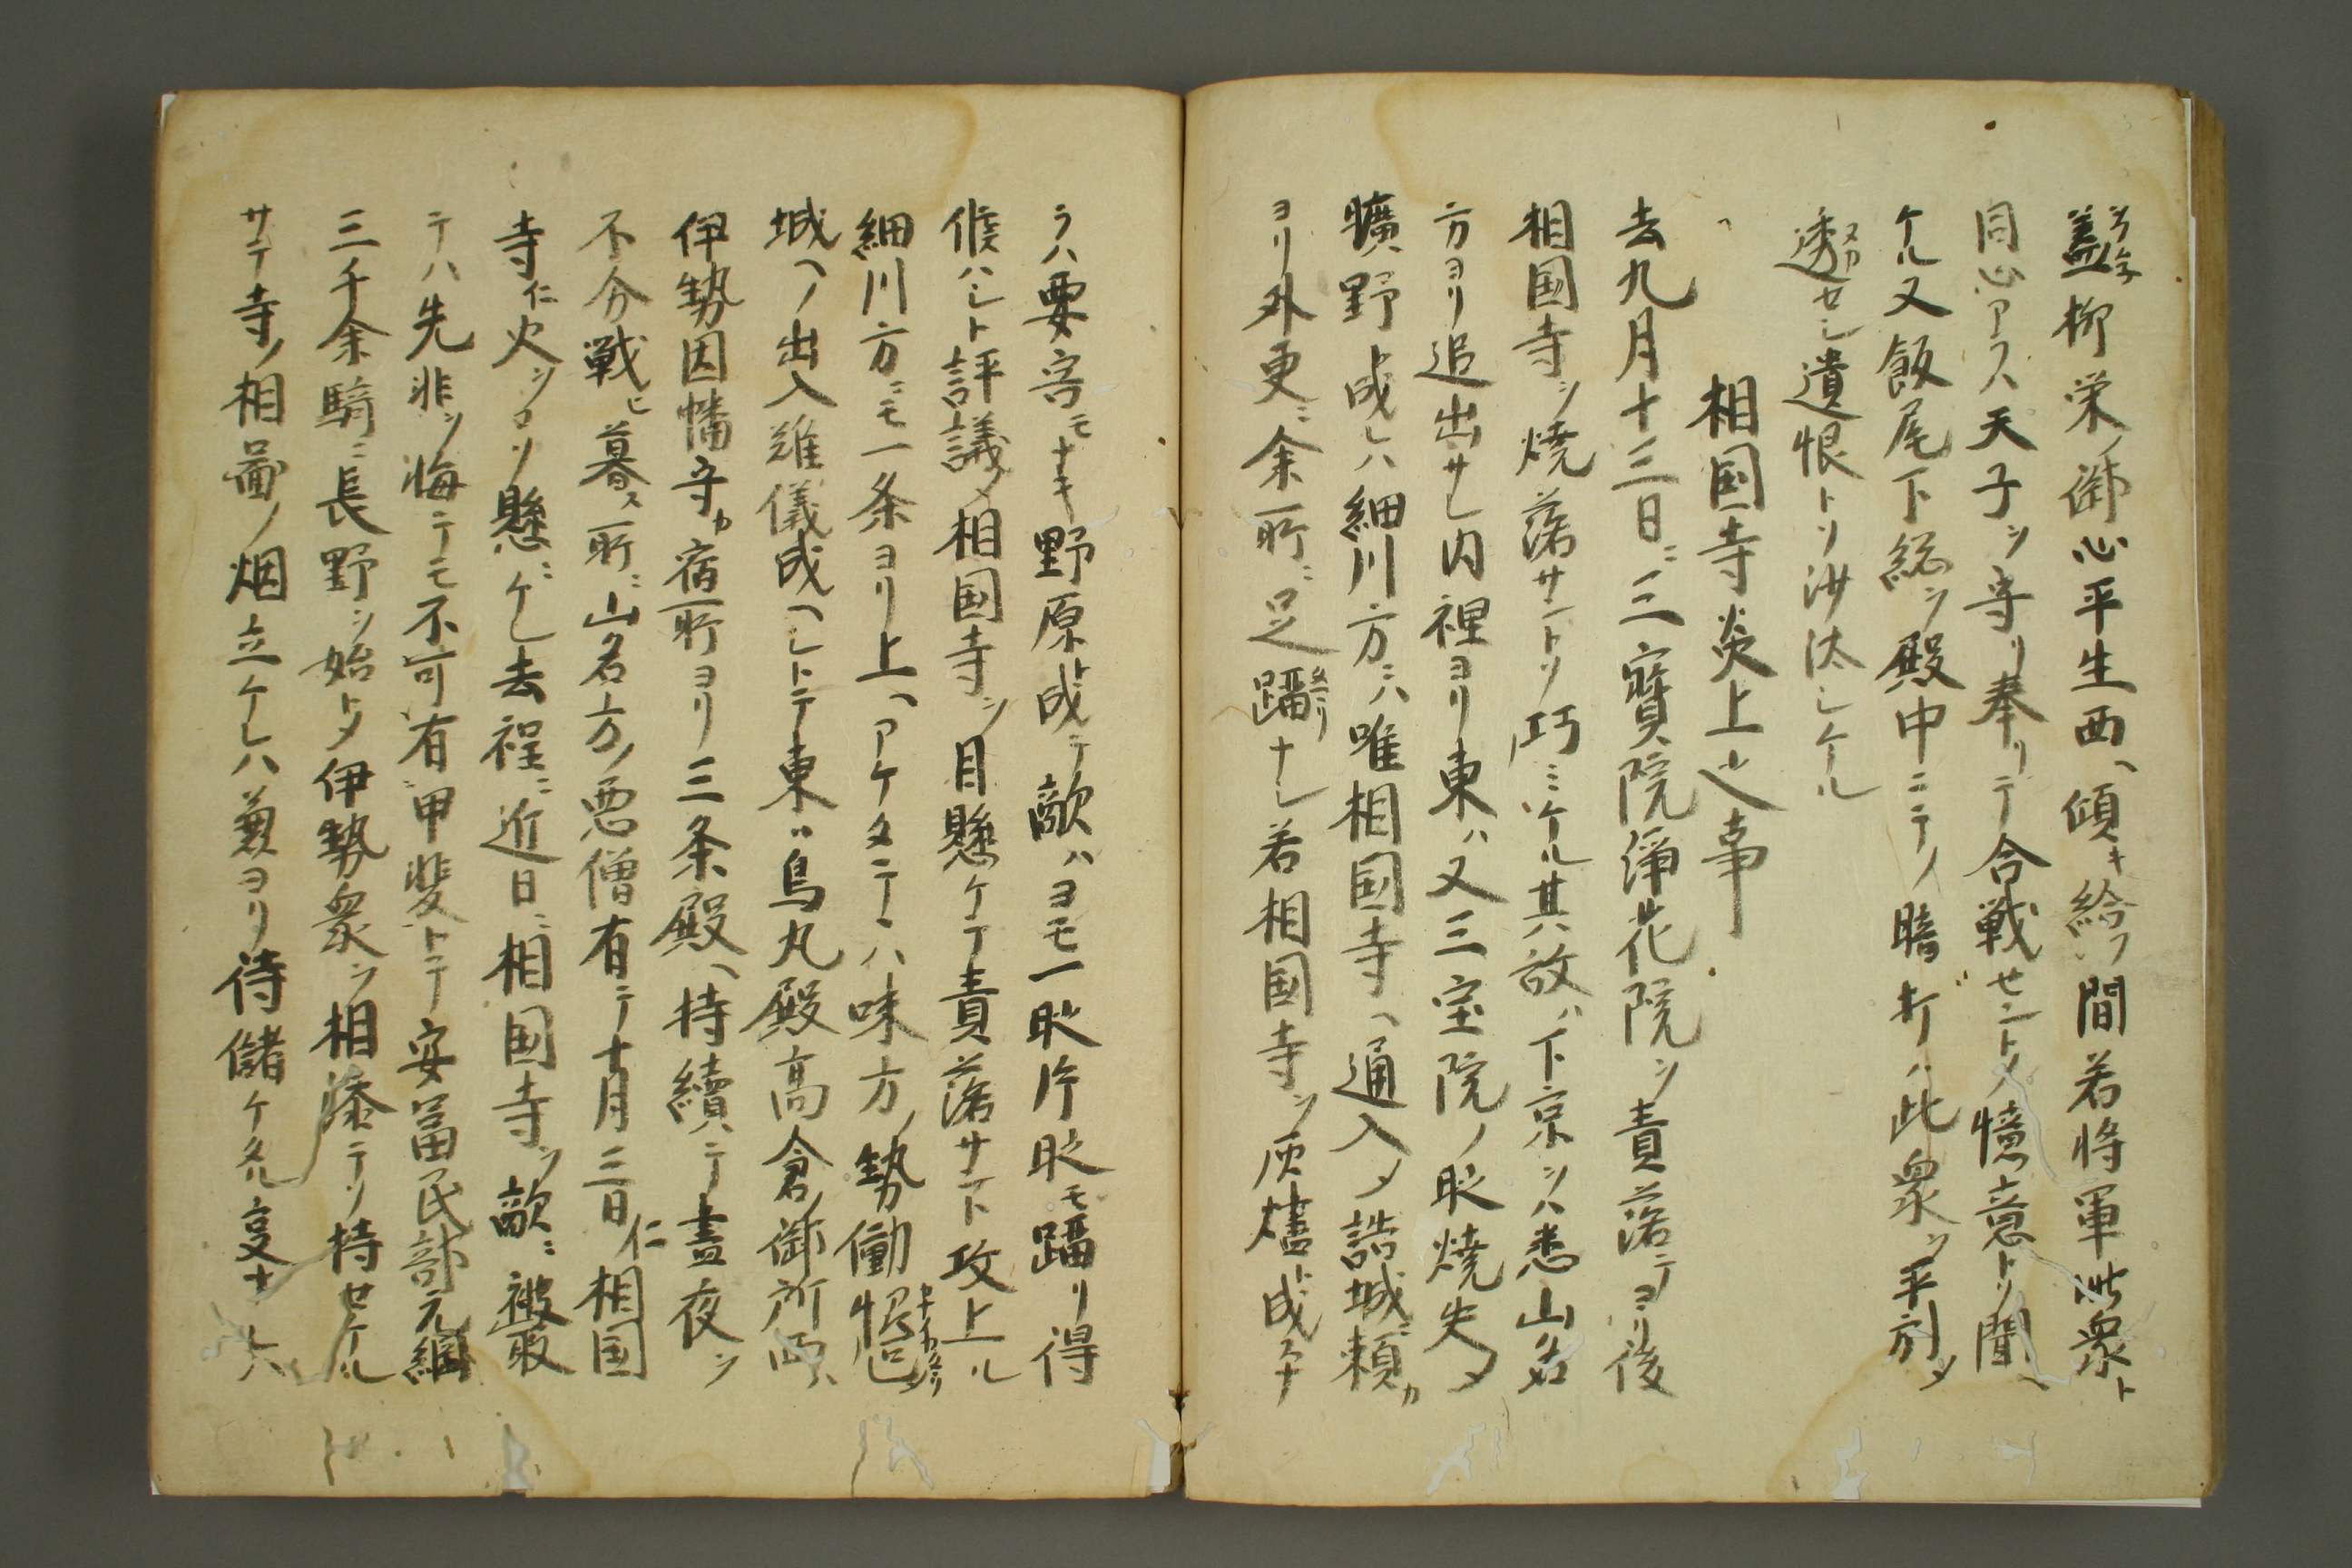 蓋柳栄ノ御心平生西ヘ傾キ給フ間若将軍此衆ト
同心アラハ天子ヲ守リ奉リテ合戦センドノ憶意トソ聞ヘ
ケル又飯尾下総ヲ殿中ニテノ暗打ハ此衆ヲ平ケヲ
透セシ遺恨トソ沙汰シケル
相国寺炎上之事
去九月十三日ニ三寳院浄花院ヲ責落テヨリ後
相国寺ヲ焼落サントソ巧ミケル其故ハ下京ヲハ悉山名
方ヨリ追出サレ内裡ヨリ東ハ又三宝院ノ時焼失メ
曠野ト成レハ細川方ニハ唯相国寺ヘ通入メ詰城ニ頼カ
ヨリ外更ニ余所ニ足躡ナシ若相国寺ヲ灰燼ト成タ
ラハ要害モナキ野原ト成テ敵ハヨモ一時片時モ躡リ得
候ハシト評議メ相国寺ヲ目懸ケテ責落サント攻上ル
細川方ニモ一条ヨリ上ヘアケタテハ味方ノ勢働
城ヘノ出入難儀成ヘシトテ東ハ烏丸殿高倉ノ御所西ハ
伊勢因幡守カ宿所ヨリ三条殿ヘ持續テ晝夜ヲ
不分戦ヒ暮ス所ニ山名方ノ悪僧有テ十月三日仁相国
寺仁火ヲソ懸ニケレ去程ニ近日ニ相国寺ヲ敵ニ被取
テハ先非ヲ悔テモ不可有甲斐トテ安冨民部元綱
三千余騎ニ長野ヲ始トメ伊勢衆ヲ相添テソ持セケル
サテ寺ノ相啚ノ烟立ケレハ兼ヨリ待儲ケタル亨ナレハ